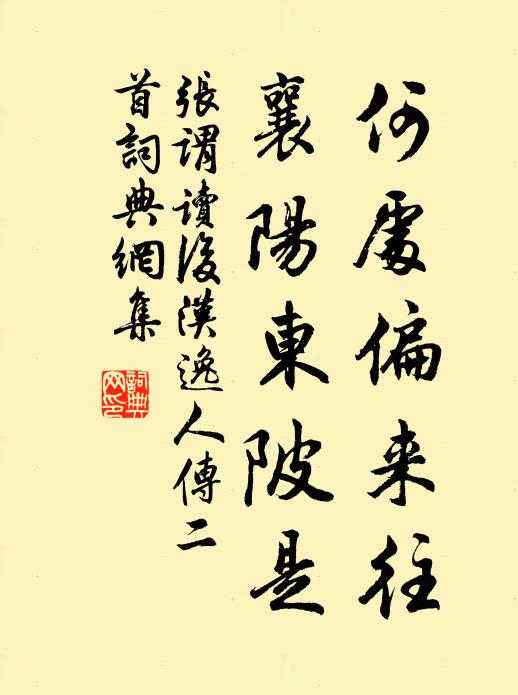 何處偏来往
襄陽東陂是
張謂讀後漢逸人傳二
首詞典網集
詞典网印